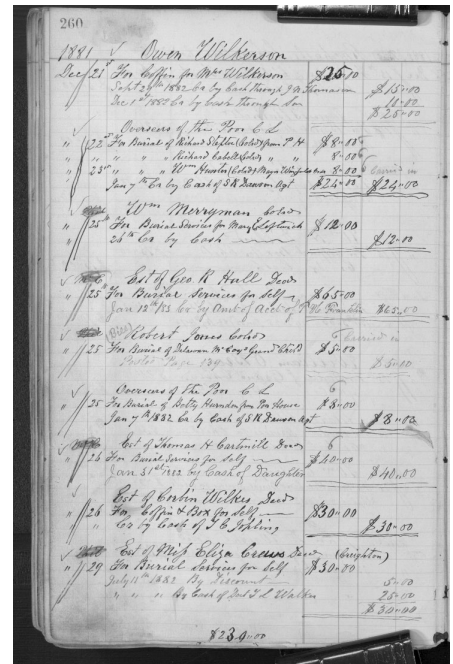 260
1881 Owen Wilkerson
Dec 21st For Coffin for Mrs Wilkerson $25.00
Sept 26th 1882 Cr by Cash Through J. N. Thomason $15.00
Dec 1st 1882 Cr by Cash through Son 10.00
$25.00
Overseers of the Poor C L
" 22nd For Burial of Richard (Cold) from P H $8.00
" " " " Richard Cabell (Cold) " " 8.00
" 23rd " " " Wm (Cold) 8.00
Jan 7th Cr by Cash of S K Dawson Agt $24.00 $24.00
Wm Merryman Cold
" 25th For Burial Services for $12.00
" 26th Cr by Cash $12.00
Est of Geo. K Hull Decd
" 25th For Burial Services for Self $65.00
Jan 12th Cr by Amt of Acct of Franklin $65.00
Robert Jones Cold
" 25 For Burial of Grand Child $5.00
Page 139 $5.00
Overseers of the Poor C L
" 25 For Burial of Betty Herndon from Poor House $8.00
Jan 7th 1882 Cr by Cash of S K Dawson Agt $8.00
Est of Thomas H Cartmill Decd
" 26 For Burial Services for Self $40.00
Jan 31st 1882 by Cash of Daughter $40.00
Est of Corbin Wilkes Decd
" 26 For Coffin & Box for Self $30.00
" Cr by Cash of T C Jopling $30.00
Est of Miss Eliza Crews Decd (Creighton)
" 29 For Burial Services for Self $30.00
July 11th 1882 By Discount 5.00
" " " By Cash of T L Walker 25.00
$30.00
$239.00